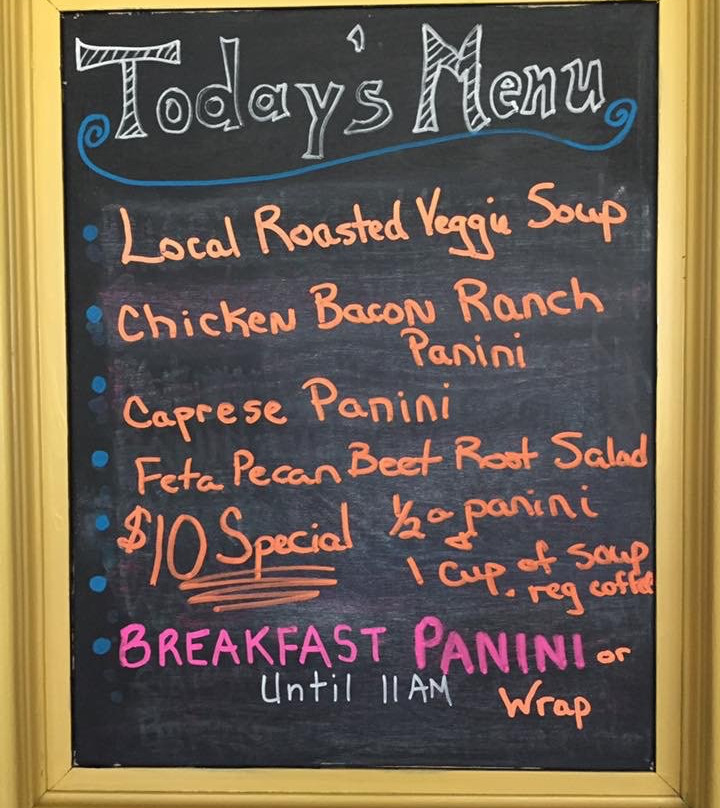 Today's Menu
Local Roasted Veggie Soup
Chicken Bacon Ranch
Panini
Caprese Panini
Feta Pecan Beet Root Salad
$10 Special ½ a panini
1 cup of soup
. reg coffee
BREAKFAST PANINI or
Until 11AM Wrap